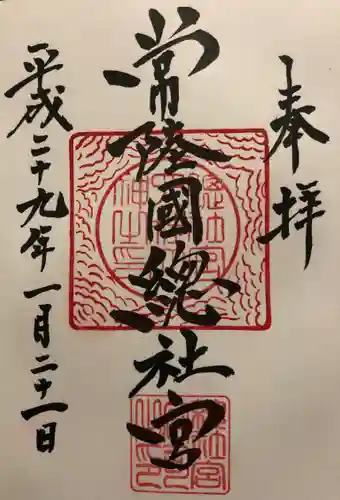 奉拝
常陸國總社宮
平成二十九年一月二十一日